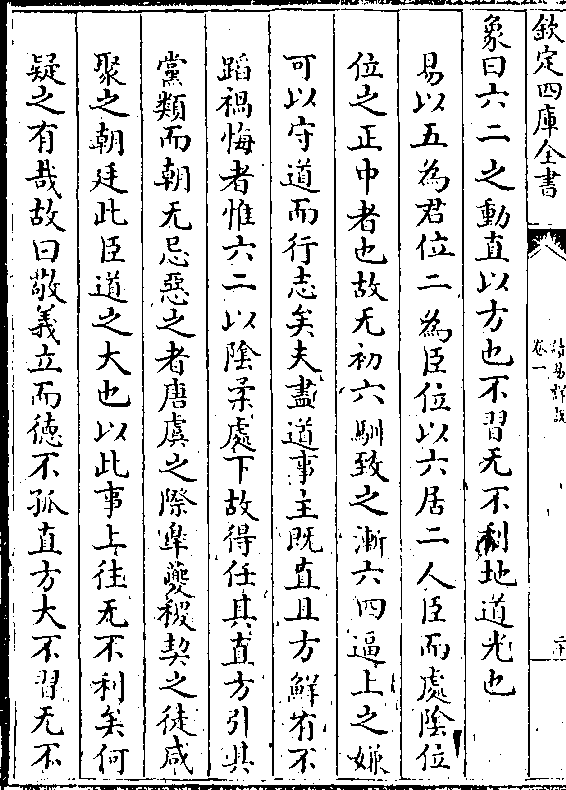 欽定四庫全書
讀易詳說
卷一
二十
象曰六二之動直以方也不習无不利地道光也
易以五為君位二為臣位以六居二人臣而處陰位
位之正中者也故无初六馴致之漸六四逼上之嫌
可以守道而行志矣夫盡道事主既直且方鮮有不
蹈禍悔者惟六二以陰柔處下故得任其直方引其
黨類而朝无忌惡之者唐虞之際臯夔稷契之徒咸
聚之朝廷此臣道之大也以此事上往无不利矣何
疑之有哉故曰敬義立而德不孤直方大不習无不